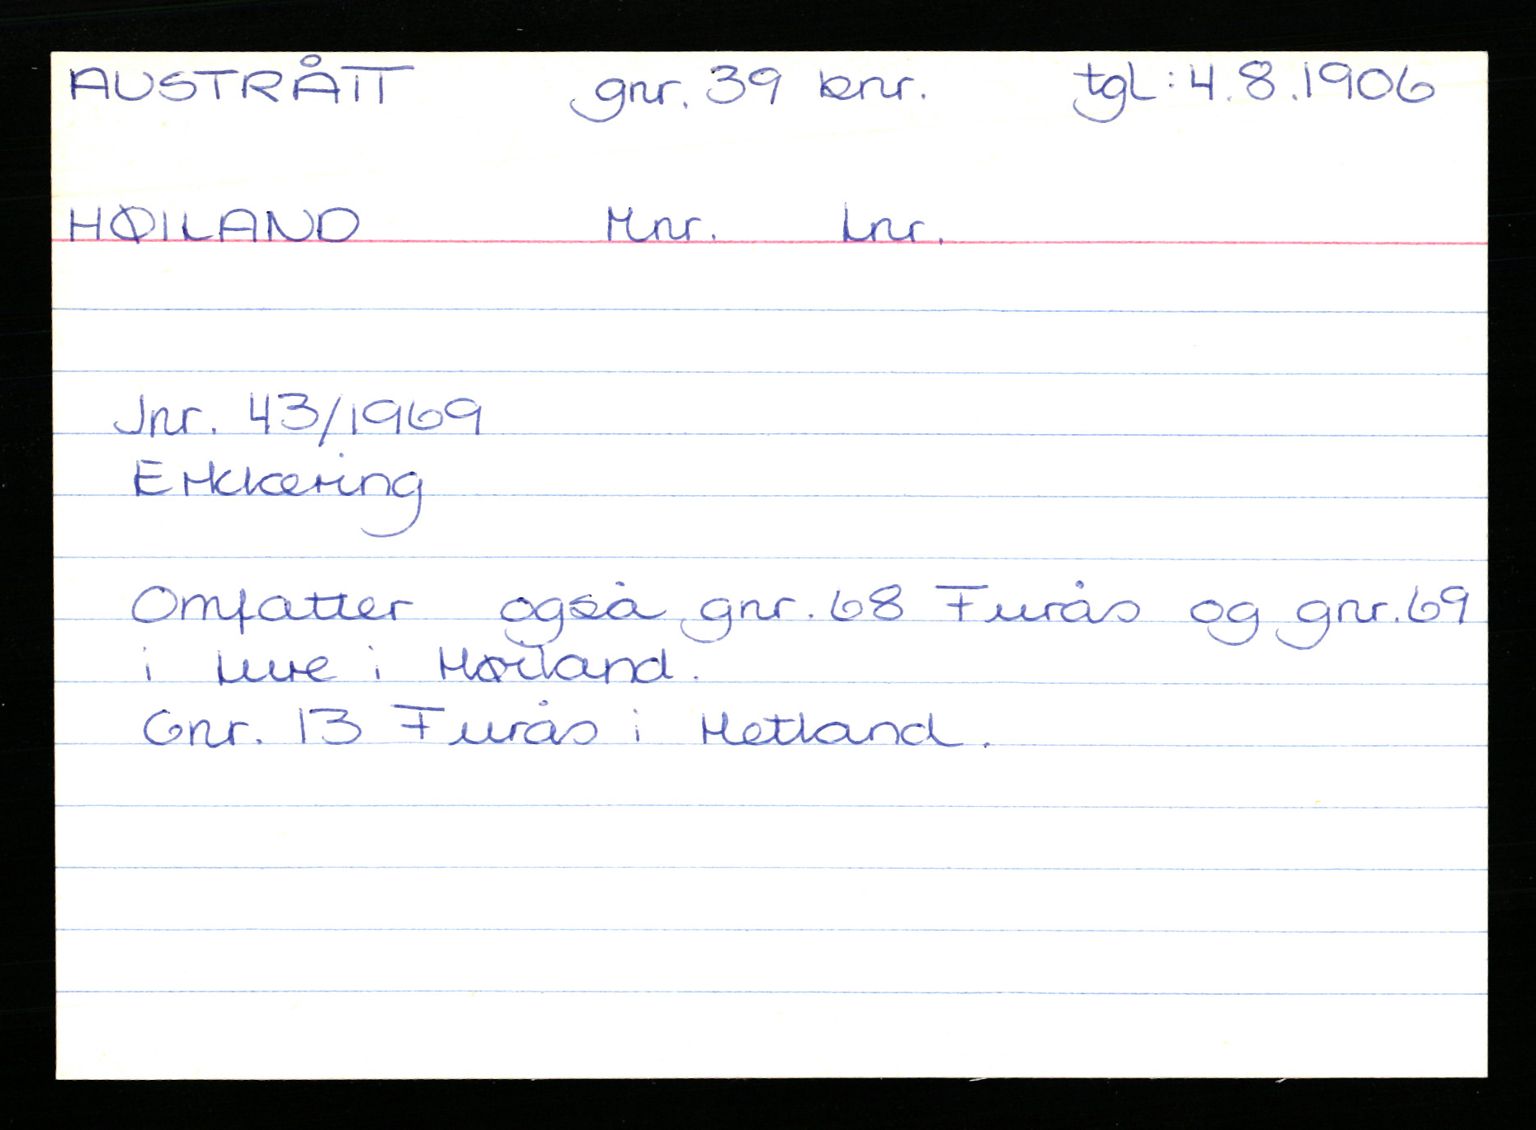 AUSTRÅTT gnr. 39 bnr. tgl: 4.8.1906
HØILAND Mnr. Lnr.
Jnr. 43/1969
Erklæring
Omfatter også gnr. 68 Furås og gnr. 69
i Lure i Høiland.
Gnr. 13 Furås i Hetland.